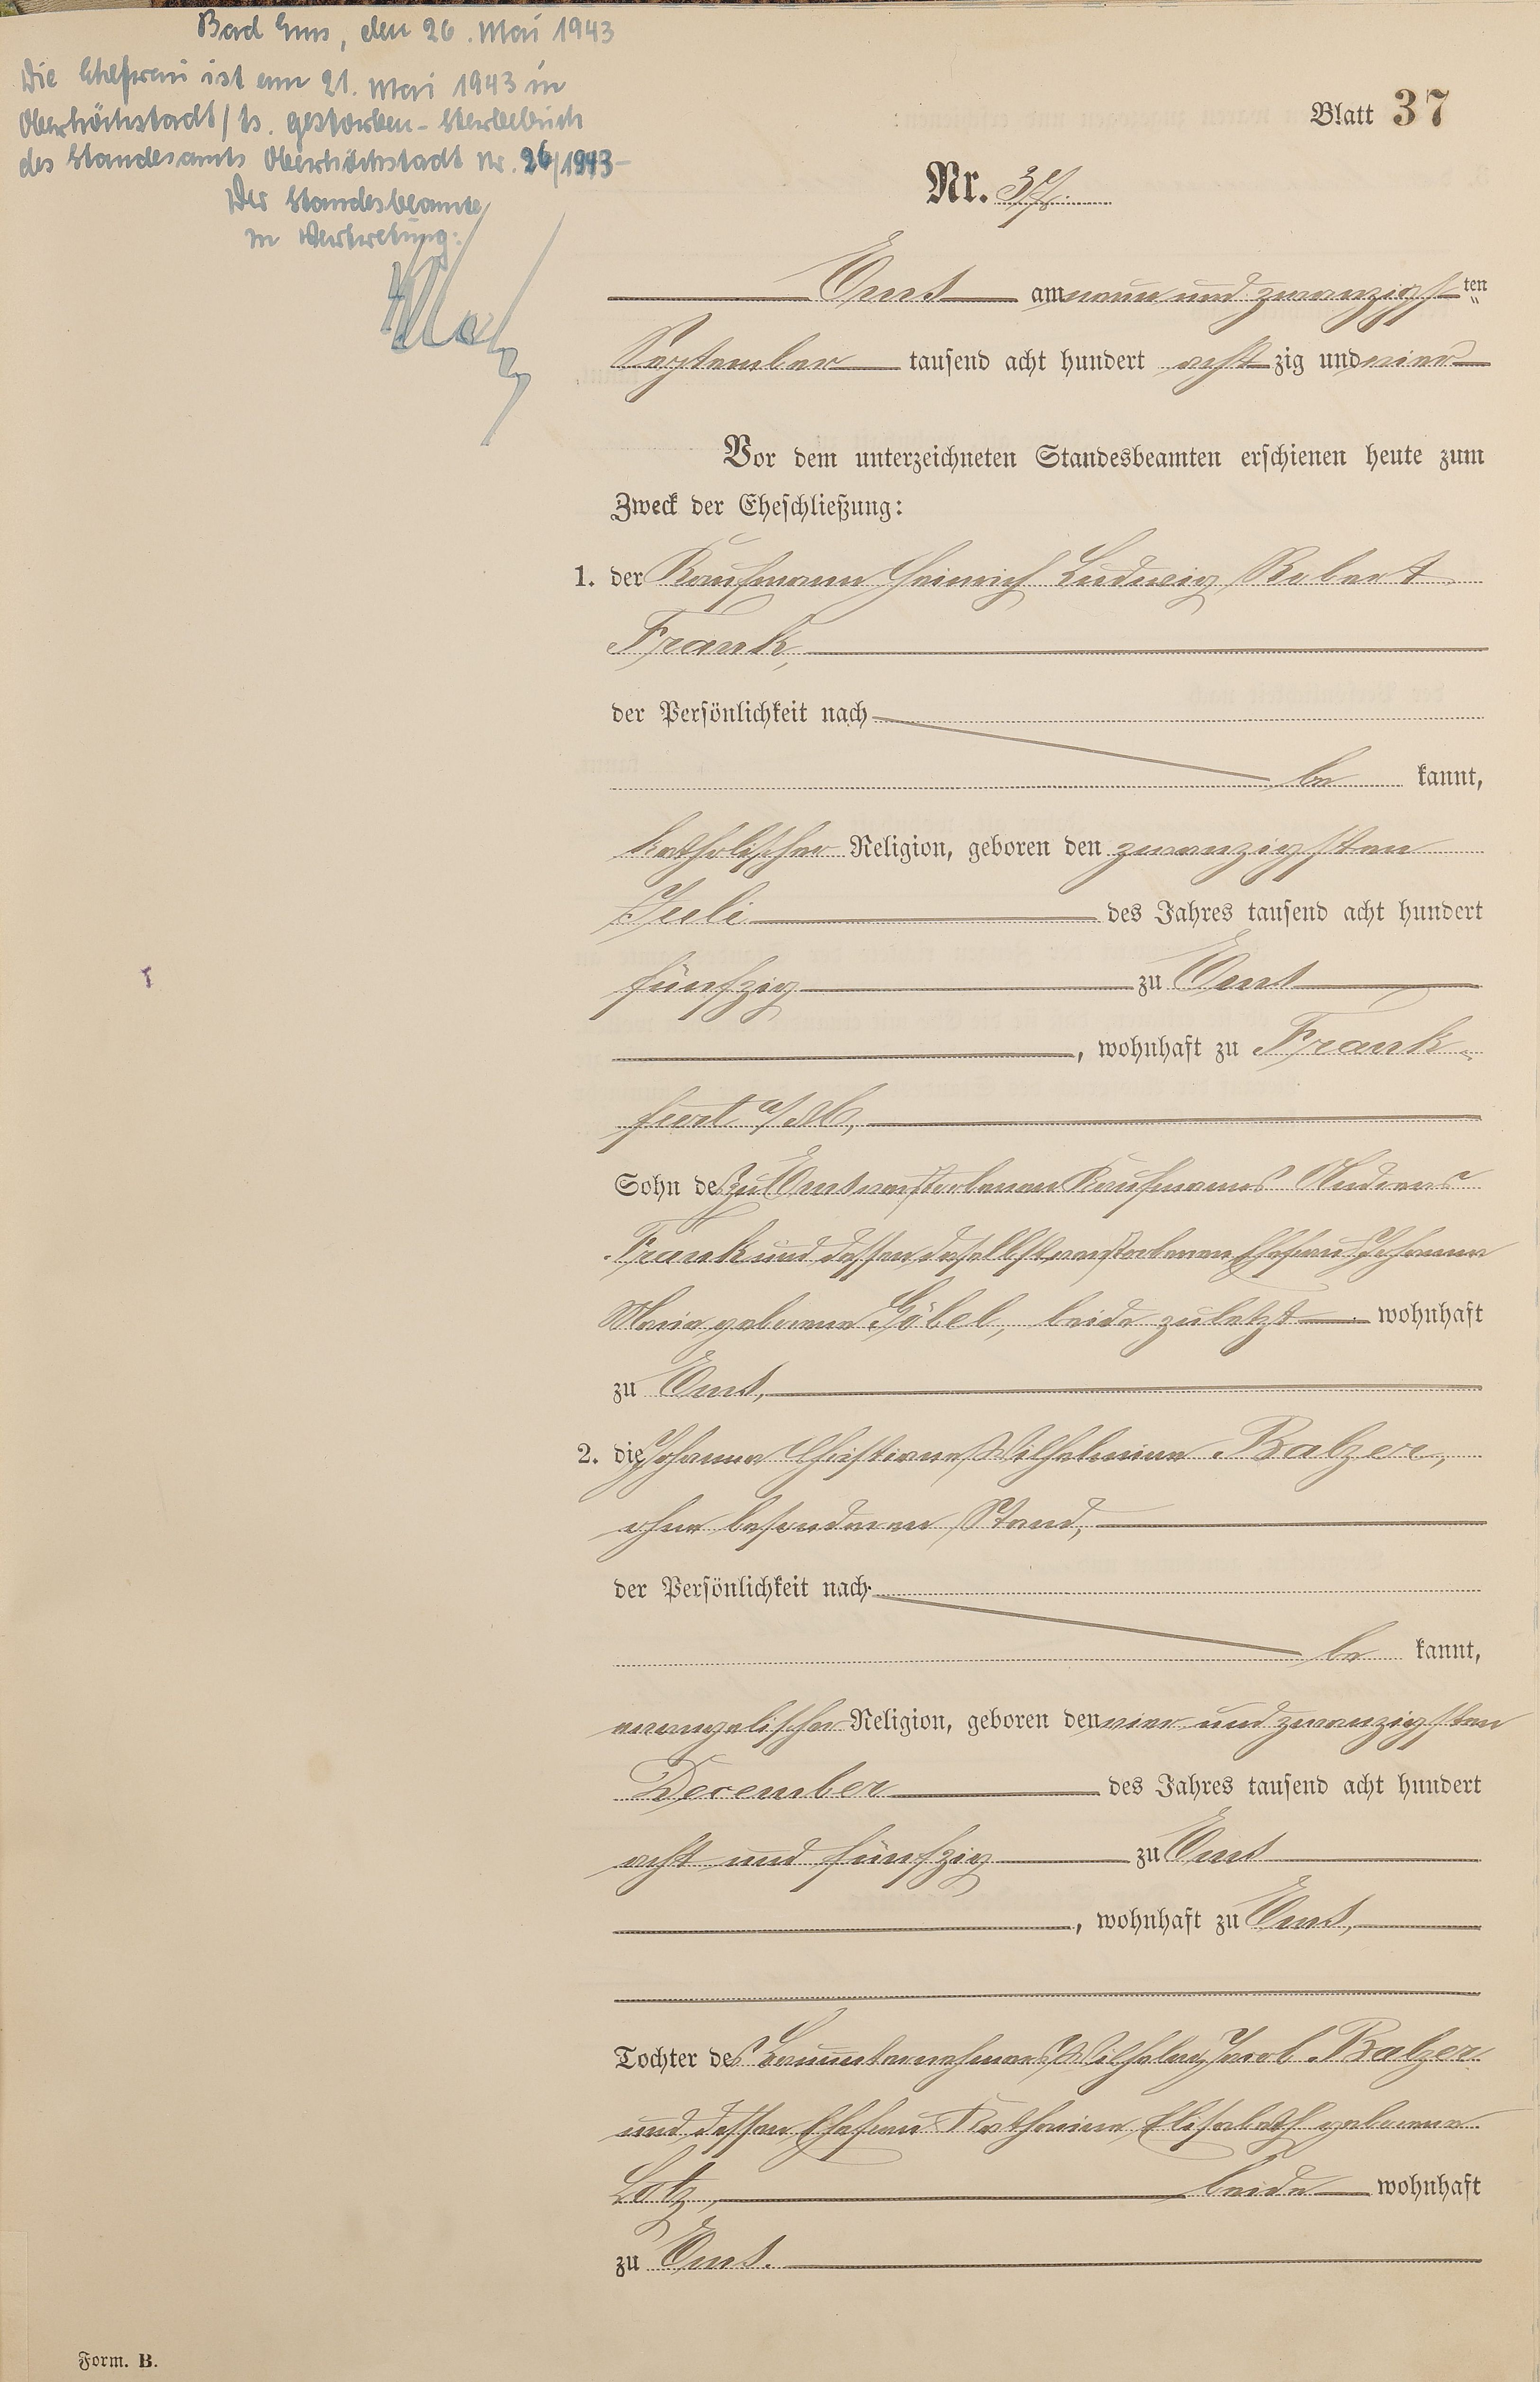 Bad Ems, den 26. Mai 1943
Die Ehefrau ist am 21. Mai 1943 in
Oberhöchstadt/Ts. gestorben - Sterbebuch
des Standesamts Oberhöchstadt Nr. 26/1943 -
Der Standesbeamte
In Vertretung:
Blatt 37
Nr. 37.
Ems am neun und zwanzigsten
September tausend acht hundert acht zig und vier
Vor dem unterzeichneten Standesbeamten erschienen heute zum
Zweck der Eheschließung:
1. der Kaufmann Heinrich Ludwig Robert
Frank,
der Persönlichkeit nach
be kannt,
katholischer Religion, geboren den zwanzigsten
Juli des Jahres tausend acht hundert
fünfzig zu Ems
, wohnhaft zu Frank-
furt a/M,
Sohn des zu Ems verstorbenen Kaufmanns Andreas
Frank und dessen daselbst verstorbenen Ehefrau Johanna
Maria geborene Göbel, beide zuletzt wohnhaft
zu Ems,
2. die Johanna Christiane Wilhelmine Balzer,
ohne besonderen Stand,
der Persönlichkeit nach
be kannt,
evangelischer Religion, geboren den vier und zwanzigsten
December des Jahres tausend acht hundert
acht und fünfzig zu Ems
, wohnhaft zu Ems,
Tochter des Bauunternehmers Wilhelm Jacob Balzer
und dessen Ehefrau Katharina Elisabeth geborene
Lotz, beide wohnhaft
zu Ems.
Form. B.